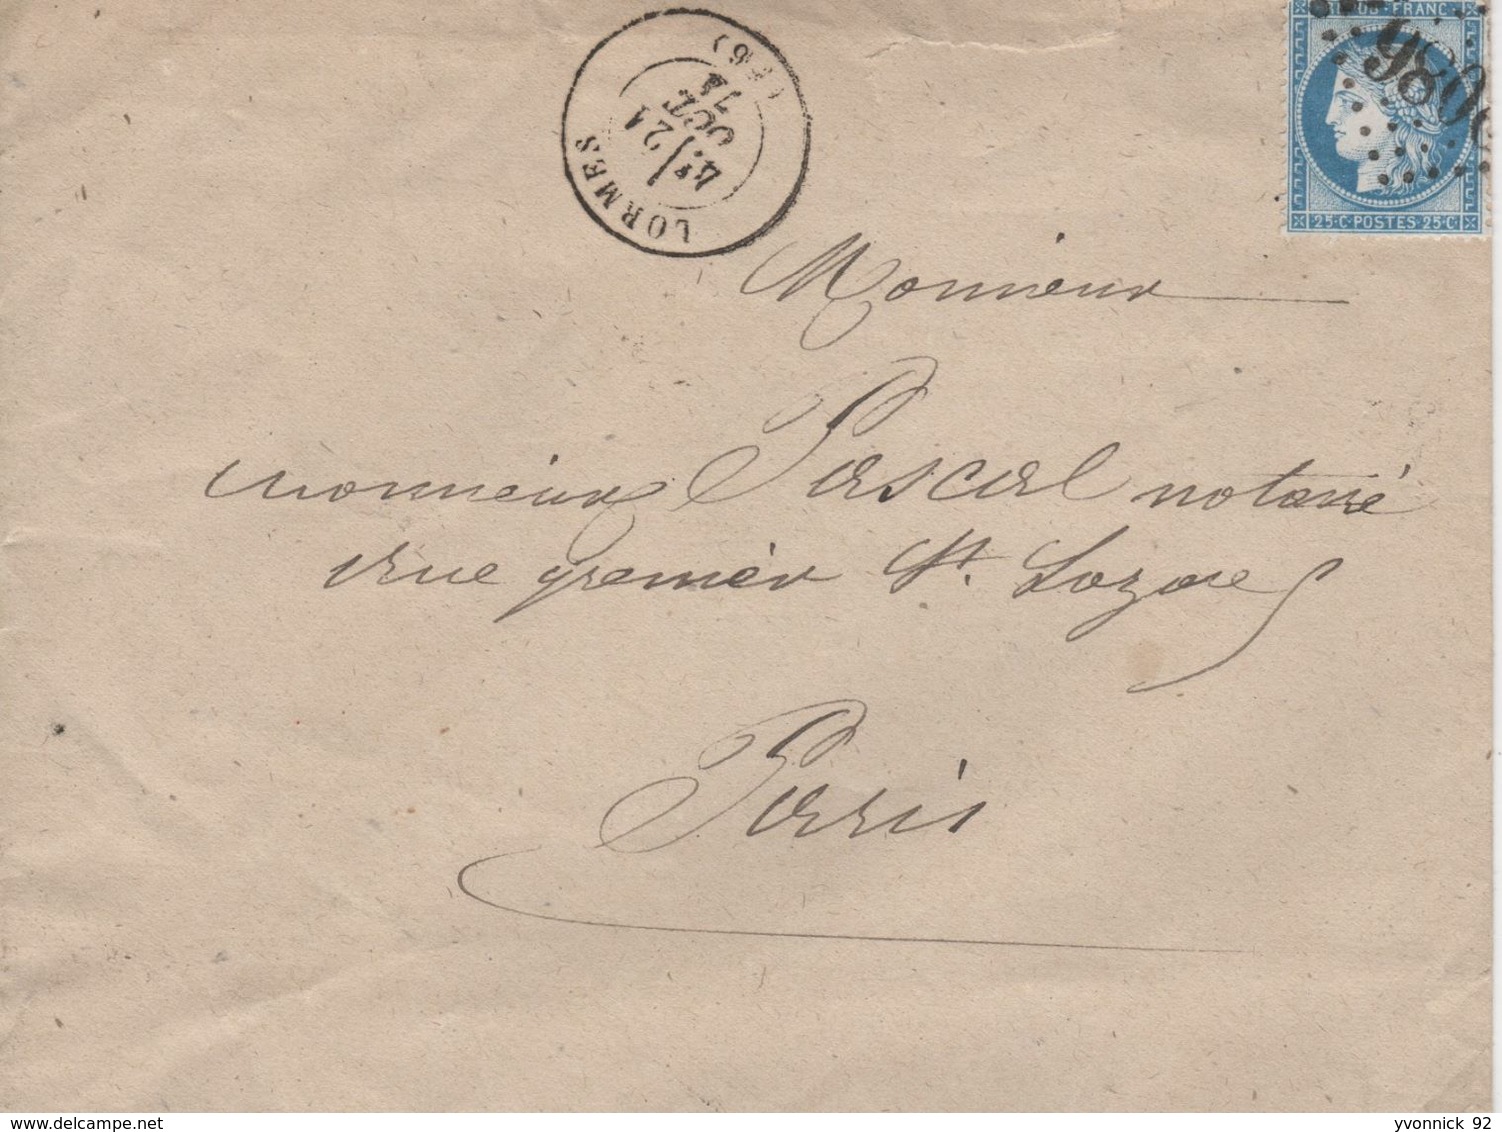 LORMES
4E
21
OCT
74
REPUB · FRANC ·
2086
25·C·POSTES·25·C
Monsieur
monsieur Pascal notaire
rue grenier St. Lazare
Paris
yvonnick 92